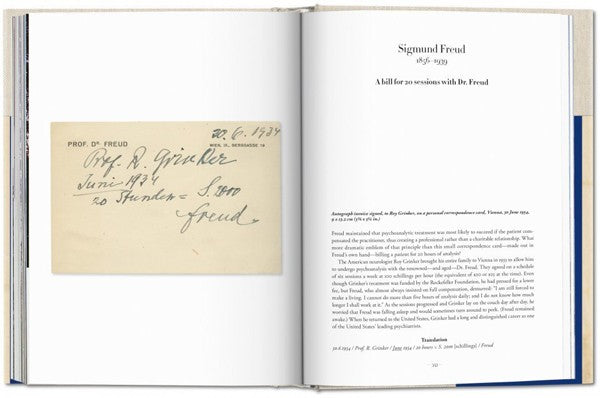 30.6.1934
PROF. DR FREUD WIEN, IX., BERGGASSE 19
Prof. R. Grinker
Juni 1934
20 Stunden = S. 2000
Freud
Sigmund Freud
1856–1939
A bill for 20 sessions with Dr. Freud
Autograph invoice signed, to Roy Grinker, on a personal correspondence card, Vienna, 30 June 1934.
Freud maintained that psychoanalytic treatment was most likely to succeed if the patient com-
pensated the practitioner, thus creating a professional rather than a charitable relationship. What
more dramatic emblem of that principle than this small correspondence card—made out in
Freud's own hand—billing a patient for 20 hours of analysis?
The American neurologist Roy Grinker brought his entire family to Vienna in 1933 to allow him
to undergo psychoanalysis with the renowned—and aged—Dr. Freud. They agreed on a schedule
of six sessions a week at 100 schillings per hour (the equivalent of $20 or $25 at the time). Even
though Grinker's treatment was funded by the Rockefeller Foundation, he had pressed for a lower
fee, but Freud, who almost always insisted on full compensation, demurred: "I am still forced to
make a living. I cannot do more than five hours of analysis daily; and I do not know how much
longer I shall work at it." As the sessions progressed and Grinker lay on the couch day after day, he
worried that Freud was falling asleep and would sometimes turn around to peek. (Freud remained
awake.) When he returned to the United States, Grinker had a long and distinguished career as one
of the United States' leading psychiatrists.
Translation
30.6.1934 / Prof. R. Grinker / June 1934 / 20 hours = S. 2000 [schillings] / Freud